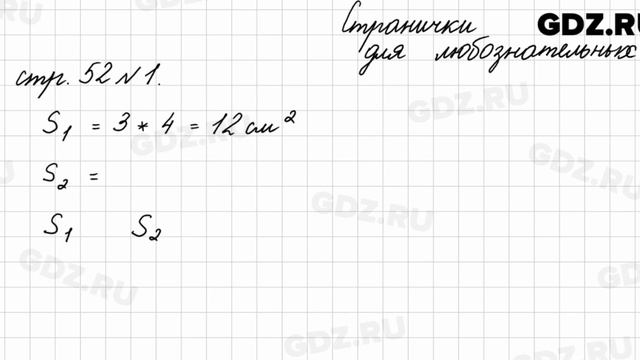 Странички
для любознательных
GDZ.RU
стр. 52 №1.
S₁ = 3 * 4 = 12 см²
S₂ =
S₁ S₂
GDZ.RU
GDZ.RU
GDZ.RU
GDZ.RU
GDZ.RU
GDZ.RU
GDZ.RU